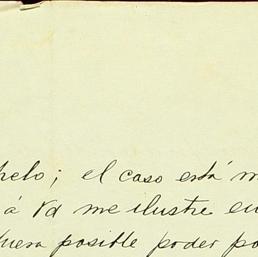 helo; el caso está m
á Vd me ilustre en
uera posible poder po